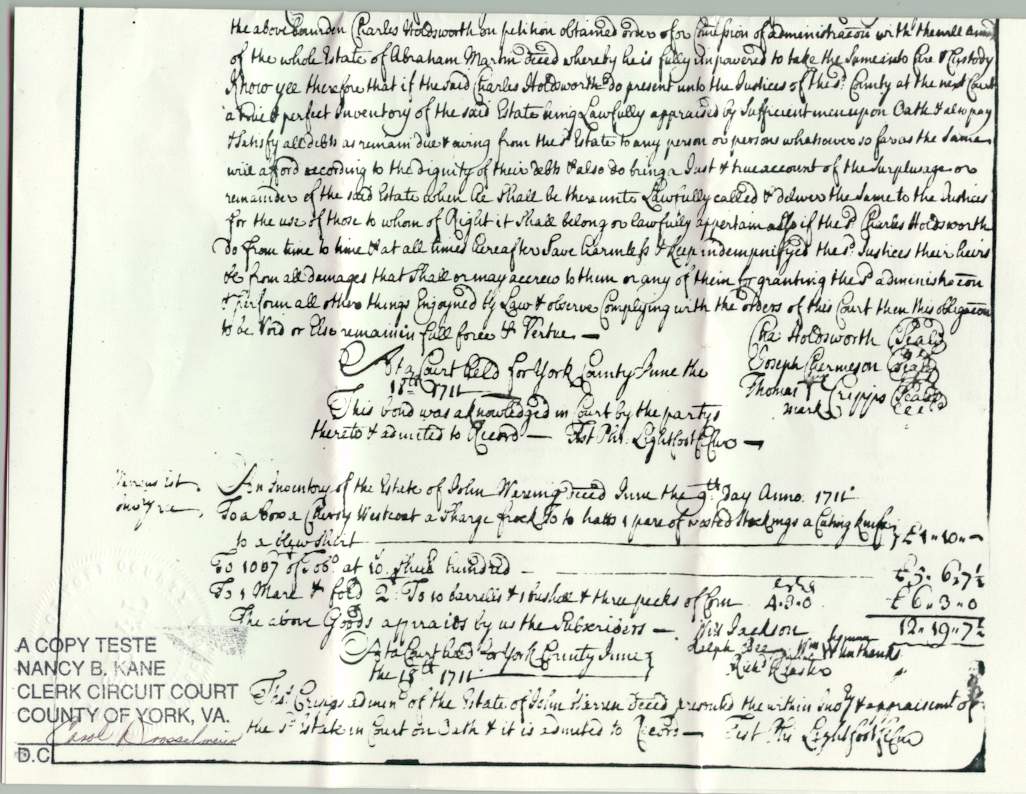 the above bounden Charles Holdsworth on petition obtained order of for Comission of administracon with the will
of the whole Estate of Abraham Martin deced whereby he is fully impowered to take the same into Care & Custody
Know yee therefore that if the said Charles Holdsworth do present unto the Justices of the sd. County at the next Court
a true & perfect Inventory of the said Estate being Lawfully appraised by Sufficient men upon Oath & also pay
& Satisfy all debts as remain due & owing from the sd Estate to any person or persons whatsoever so far as the Same
will afford according to the dignity of their debts & also do bring a Just & true account of the Surplusage or
remainder of the said Estate when he Shall be thereunto Lawfully called & deliver the Same to the Justices
for the use of those to whom of Right it Shall belong or lawfully appertain also if the sd Charles Holdsworth
do from time to time & at all times hereafter Save harmless & keep indempnifyed the sd. Justices their heirs
&c from all damages that Shall or may accrew to them or any of them by granting the sd administracon
& perform all other things Enjoyned by Law & observe Complying with the orders of this Court then this obligacon
to be Void or Else remain in full force & Vertue —
Cha Holdsworth Seald
Joseph Chermeson Seald
Thomas T Cripps Seald
mark
At a Court held for York County June the
18th 1711
This bond was acknowledged in Court by the partys
thereto & admited to Record — Test Phi. Lightfoot
An Inventory of the Estate of John Wereing deced June the 9th Day Anno. 1711
To a box a Westcoat a Sharge frock to hatts 1 pare of wosted Stockings a
to a Shirt £1"10"—
To 1067 of Tobo. at 10. hundred — £5"6"7½
To 1 Mare & fold 2. To 10 barrells & 1 bushell & three pecks of Corn 4.3.0 £6"3"0
The above Goods appraisd by us the Subscriders — 12"19"7½
Will Jackson
Ralph
At a Court held for York County June
the 18th 1711
Thos. Crips admr. of the Estate of John Warren deced presented the within Invty & appraisemt of
the sd Estate in Court on Oath & it is admited to Record — Test Phi Lightfoot
A COPY TESTE
NANCY B. KANE
CLERK CIRCUIT COURT
COUNTY OF YORK, VA.
Carol
D.C.